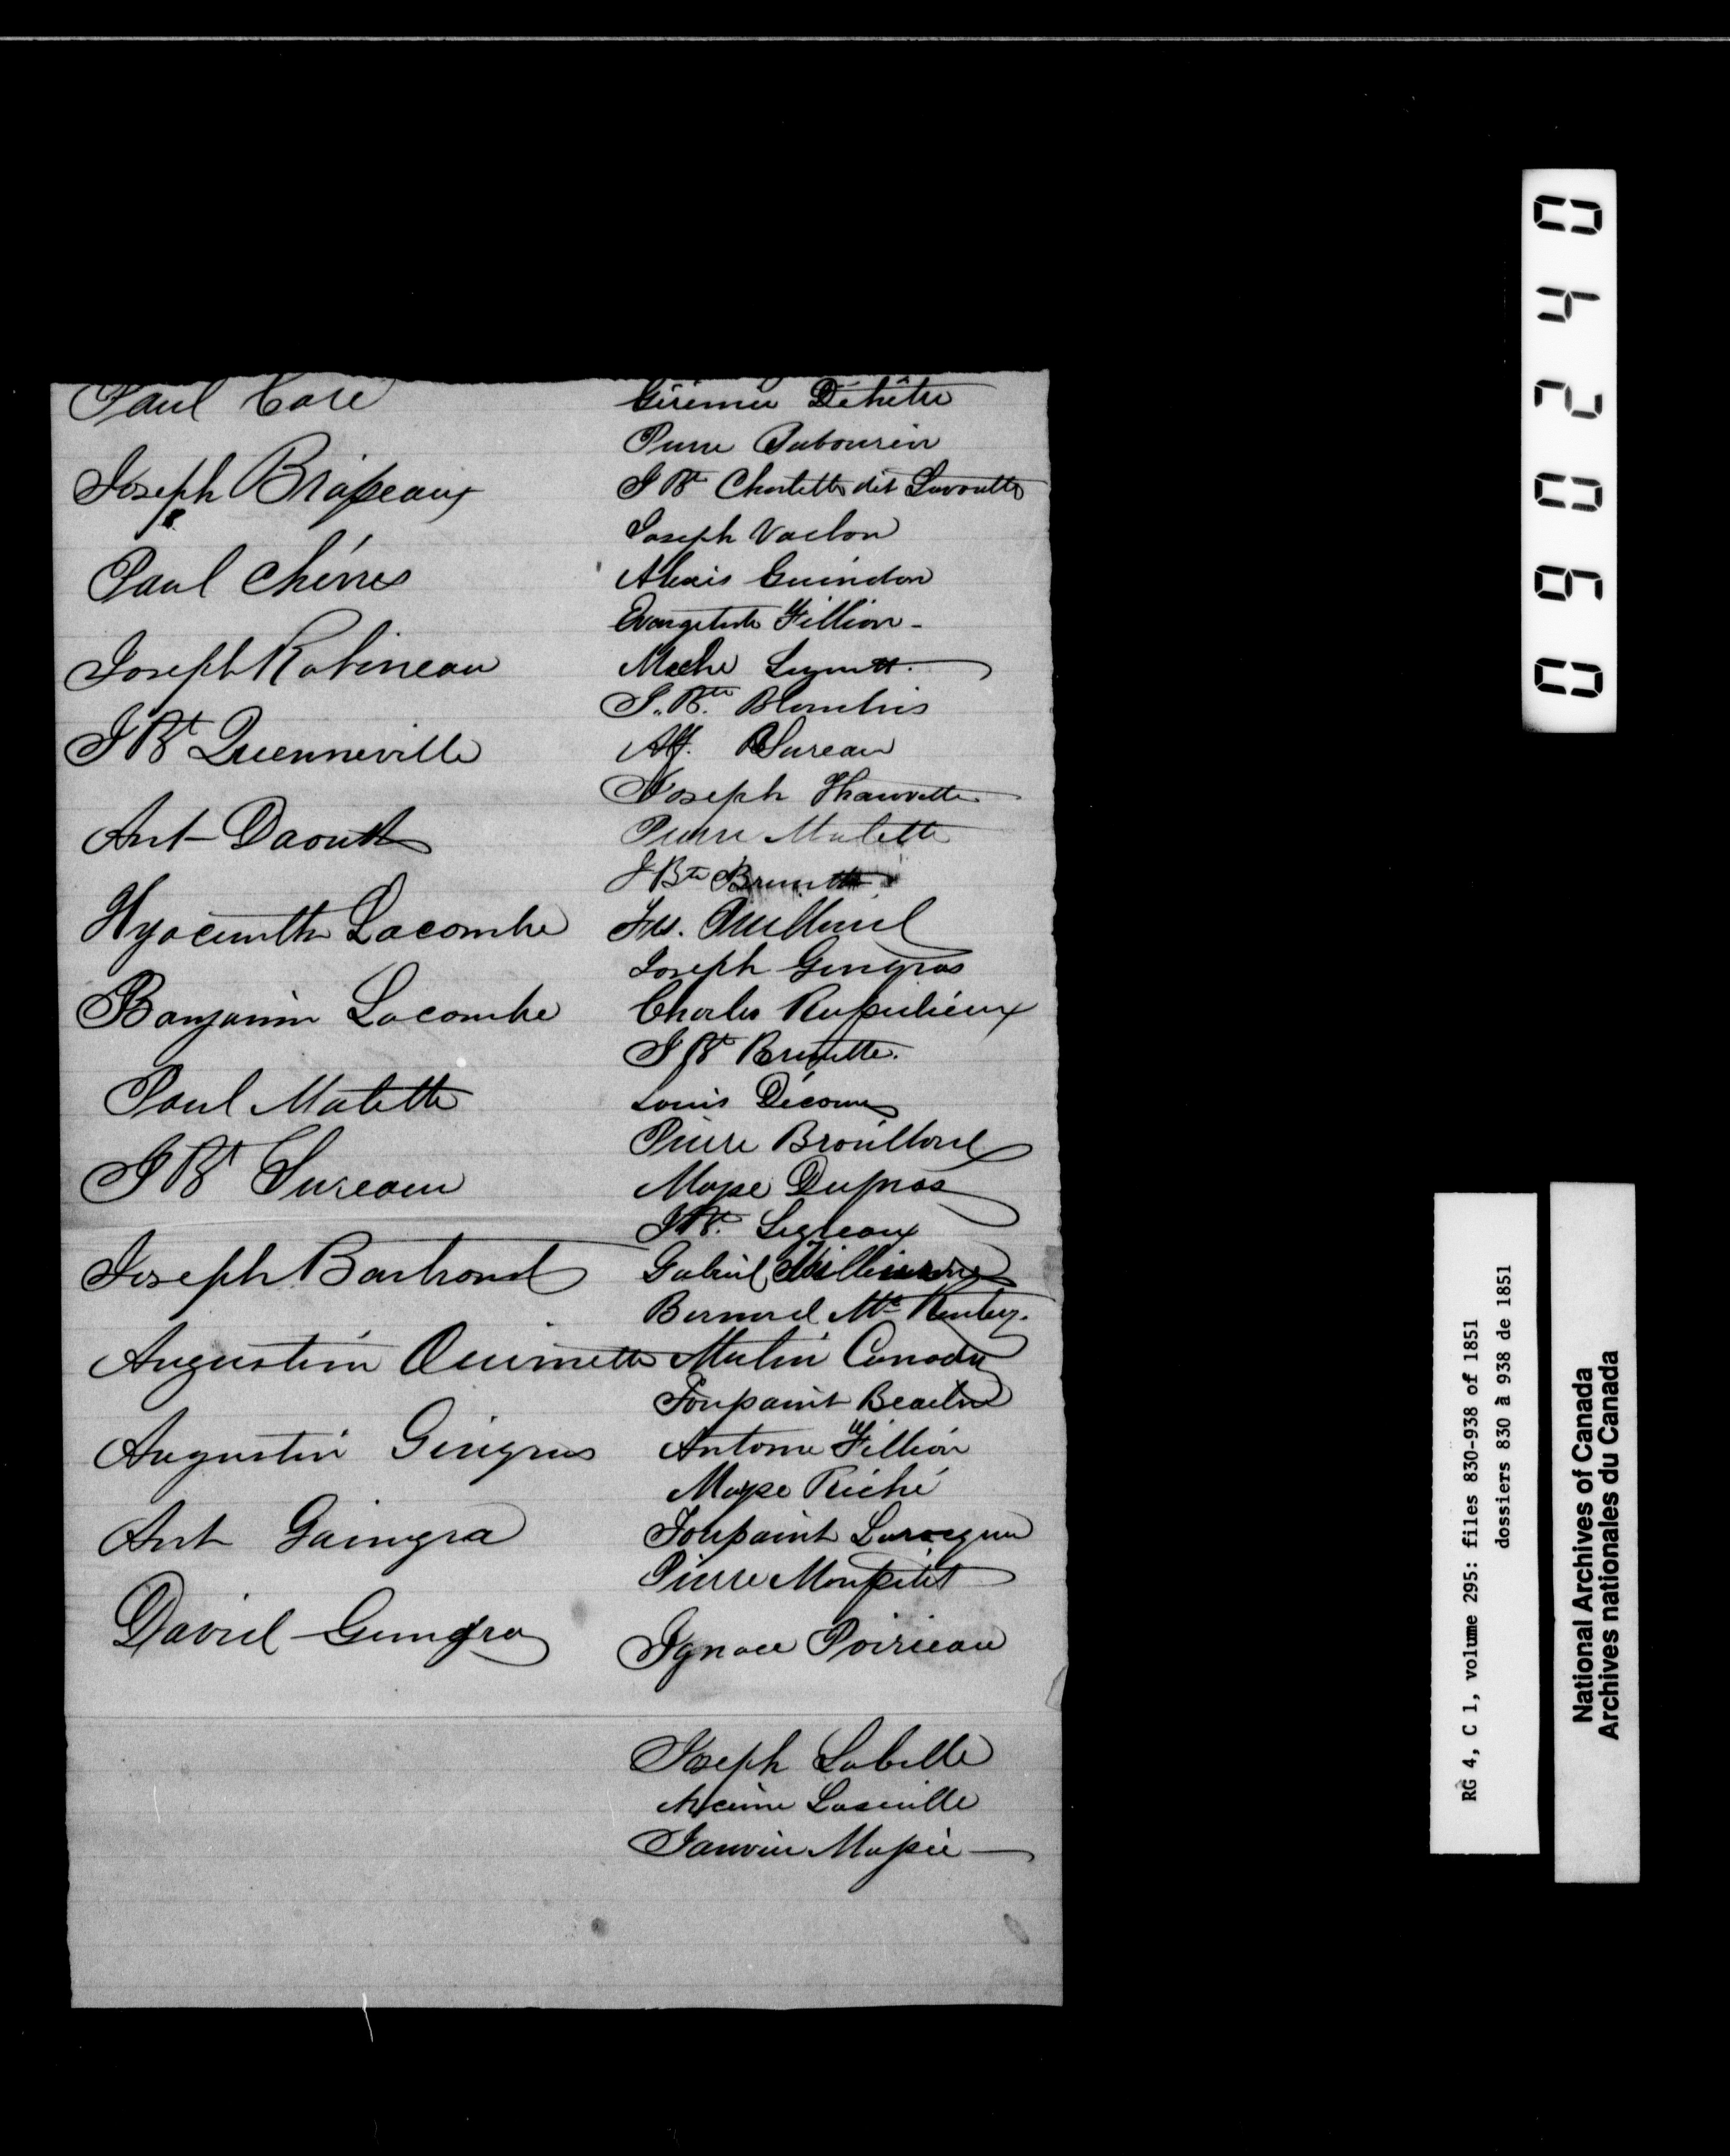 Paul Core
Joseph Braſeaux
Paul Chénes
Joseph Robineau
J Bt Quenneville
Ant Daoust
Hyacinthe Lacombe
Banjamin Lacombe
Paul Malette
J Bt Sureau
Joseph Bartrand
Augustin Ouimette
Augustin Gingras
Ant Gaingra
David Gungra
Gérémie Déhêtre
Pierre Rabourin
J Bte dit Lavoutte
Joseph Vachon
Alexis Guindon
Fillion
J. Bte
Alf. Sureau
Joseph Thauvette
Pierre Malette
J Bte Brunette
Frs.
Joseph Gingras
Charles
J Bt Brunette.
Louis
Pierre Brouillard
Moyse Dupras
J Bt. Legleaux
Gabriel
Bernard Mc
Martin Canady
Toussaint
Antoine Fillion
Moyse Riché
Toussaint Larocque
Pierre Monpetit
Ignace Poirieau
Joseph Labelle
Laseuille
Janvier Massie
0 9 0 2 4 0
RG 4, C 1, volume 295: files 830-938 of 1851
dossiers 830 à 938 de 1851
National Archives of Canada
Archives nationales du Canada